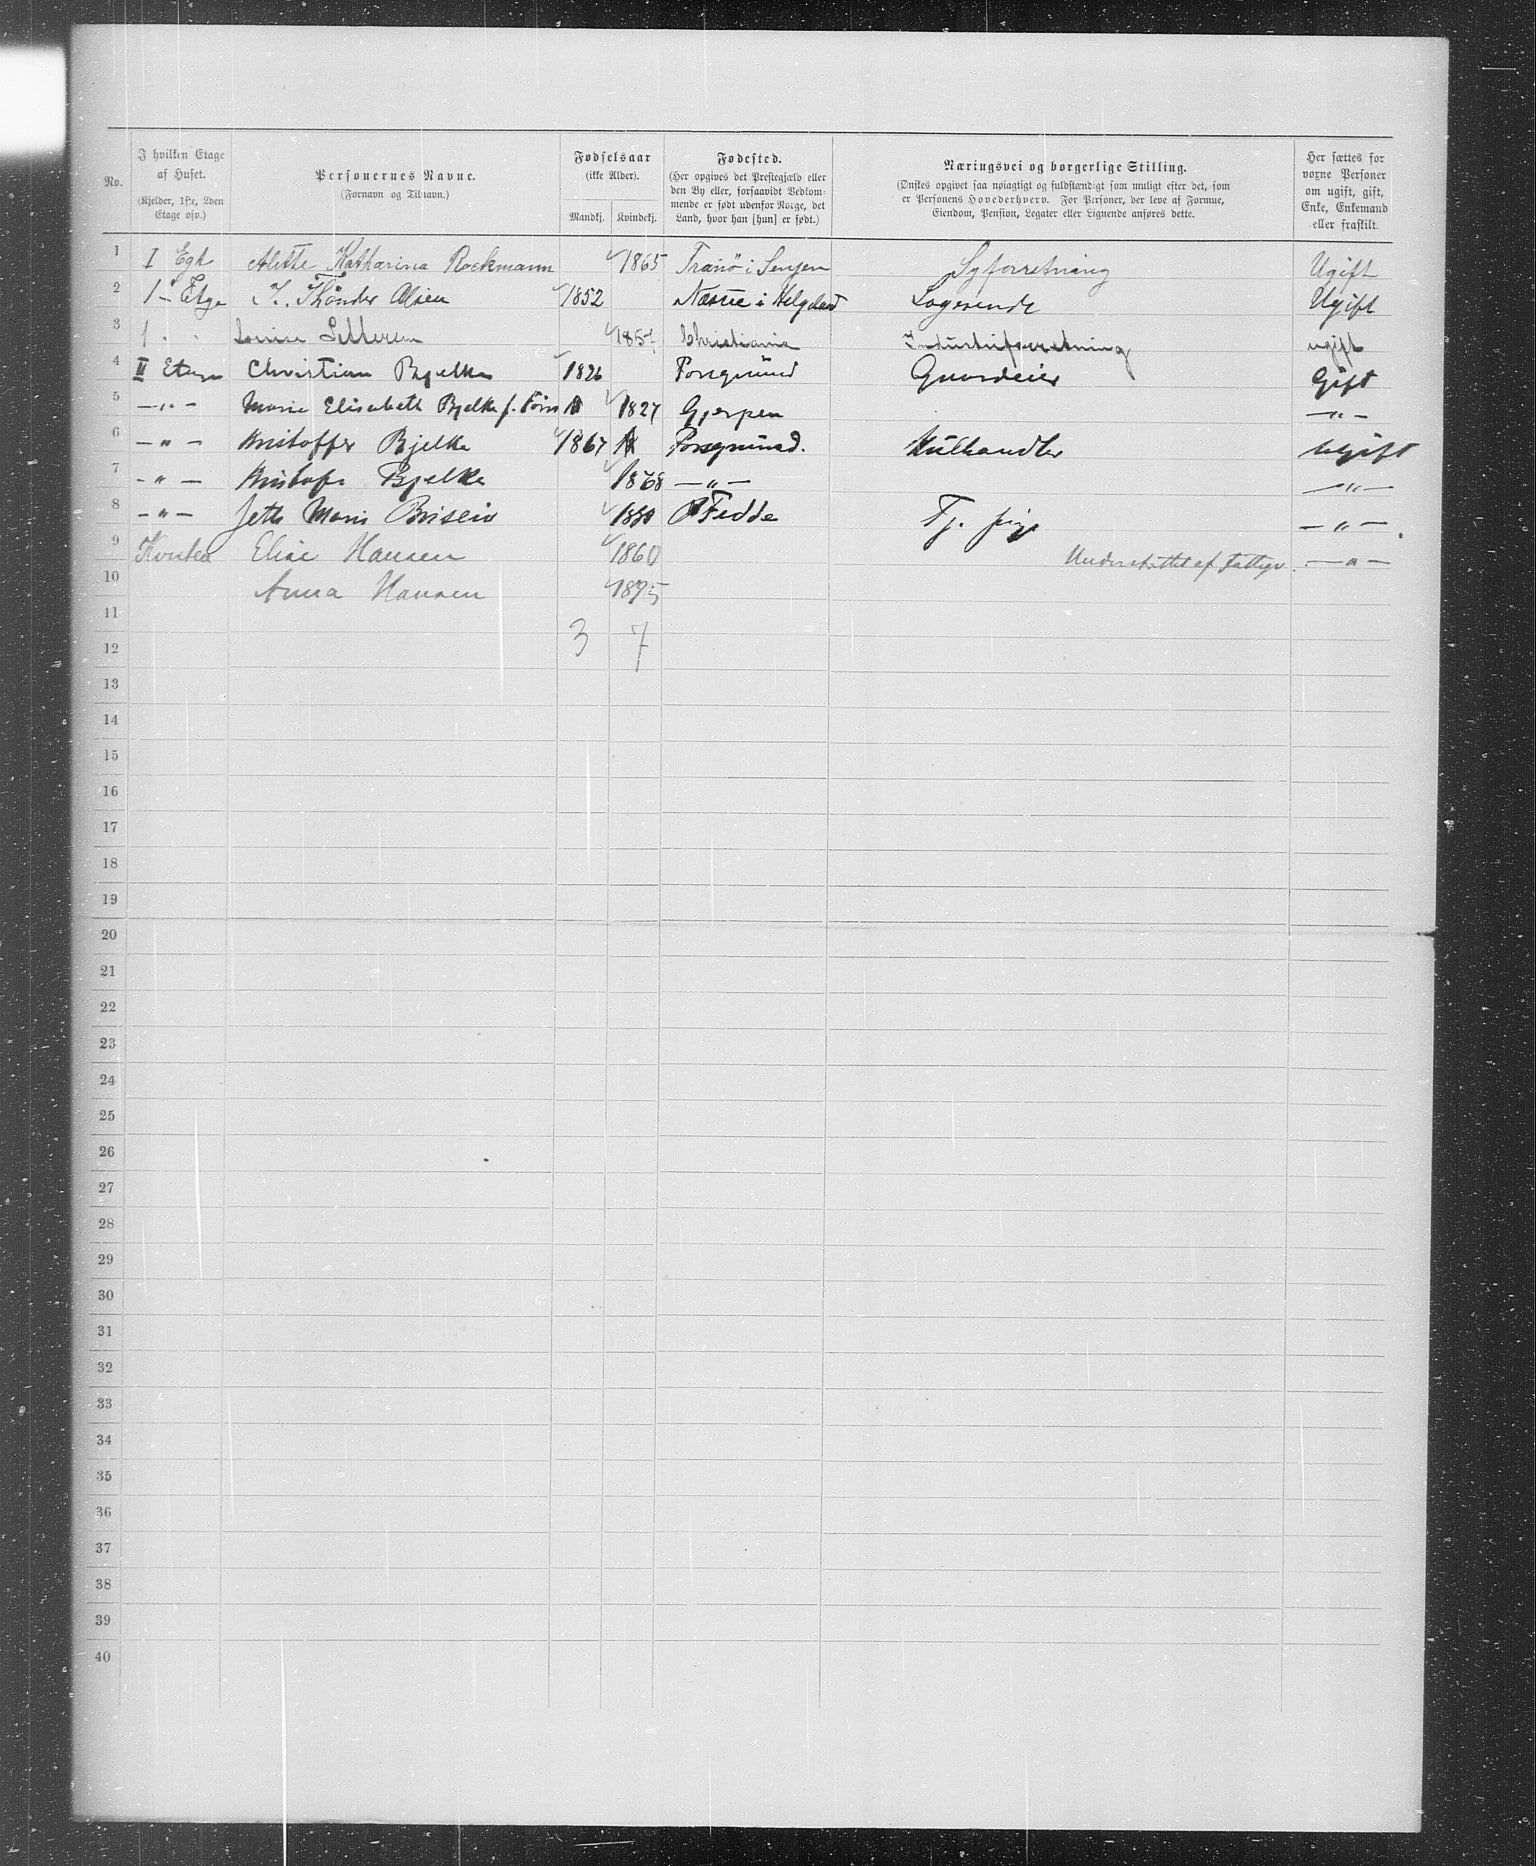 No.
I hvilken Etage af Huset.
(Kjelder, 1ste, 2den Etage osv.)
Personernes Navne.
(Fornavn og Tilnavn.)
Fødselsaar
(ikke Alder).
Mandkj. Kvindekj.
Fødested.
(Her opgives det Præstegjæld eller
den By eller, forsaavidt Vedkom-
mende er født udenfor Norge, det
Land, hvor han [hun] er født.)
Næringsvei og borgerlige Stilling.
(Ønskes opgivet saa nøiagtigt og fuldstændigt som muligt efter det, som
er Personens Hovederhverv. For Personer, der leve af Formue,
Eiendom, Pension, Legater eller Lignende anføres dette.
Her sættes for
voxne Personer
om ugift, gift,
Enke, Enkemand
eller fraskilt.
1 I Alette Katharina Rockmann 1865 Tranø i Senjen Syforretning Ugift
2 1 Etge Thönder Olsen 1852 Næsne i Helgeland Logerende Ugift
3 1 Christiania Industriforretning ugift
4 II Etage Christian Bjelke 1826 Porsgrund Gaardeier Gift
5 —"— Marie Elisabeth Bjelke f. 1827 Gjerpen —"—
6 —"— Kristoffer Bjelke 1867 Porsgrund. Kulhandler Ugift
7 —"— Bjelke 1868 —"— —"—
8 —"— Fedde Tj. pige —"—
9 Elise Hansen 1860 Understøttet af Fattigv. —"—
10 Anna Hansen 1895
11
12 3 7
13
14
15
16
17
18
19
20
21
22
23
24
25
26
27
28
29
30
31
32
33
34
35
36
37
38
39
40